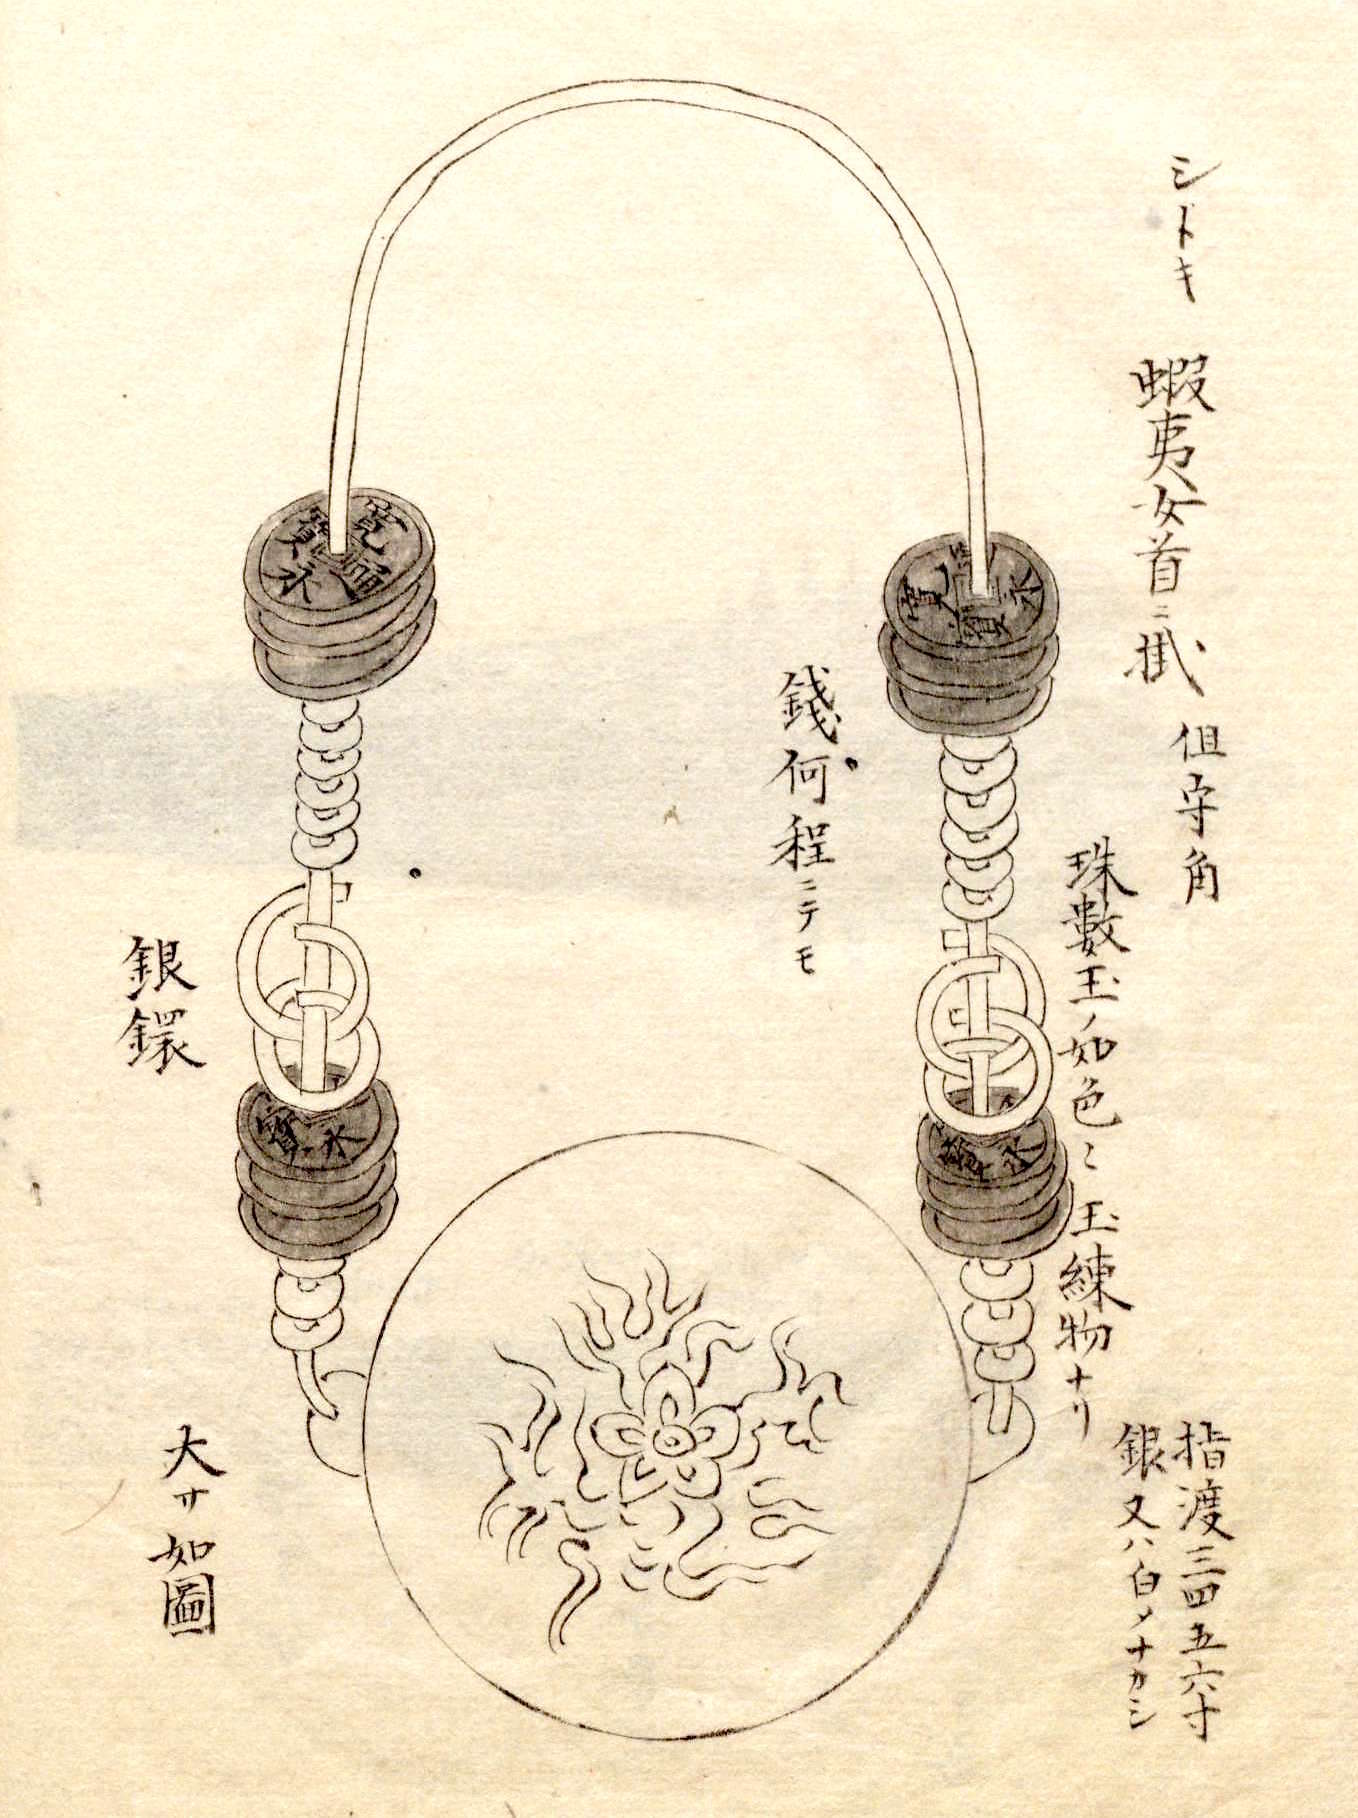 シドキ 蝦夷女首ニ掛 但守角
珠數玉ノ如色ミ 玉練物ナリ
指渡三四五六寸
銀又ハ白メナカシ
錢何程ニテモ
銀鐶
大サ如圖
寛永通寳
永
寳
寳永
寳永